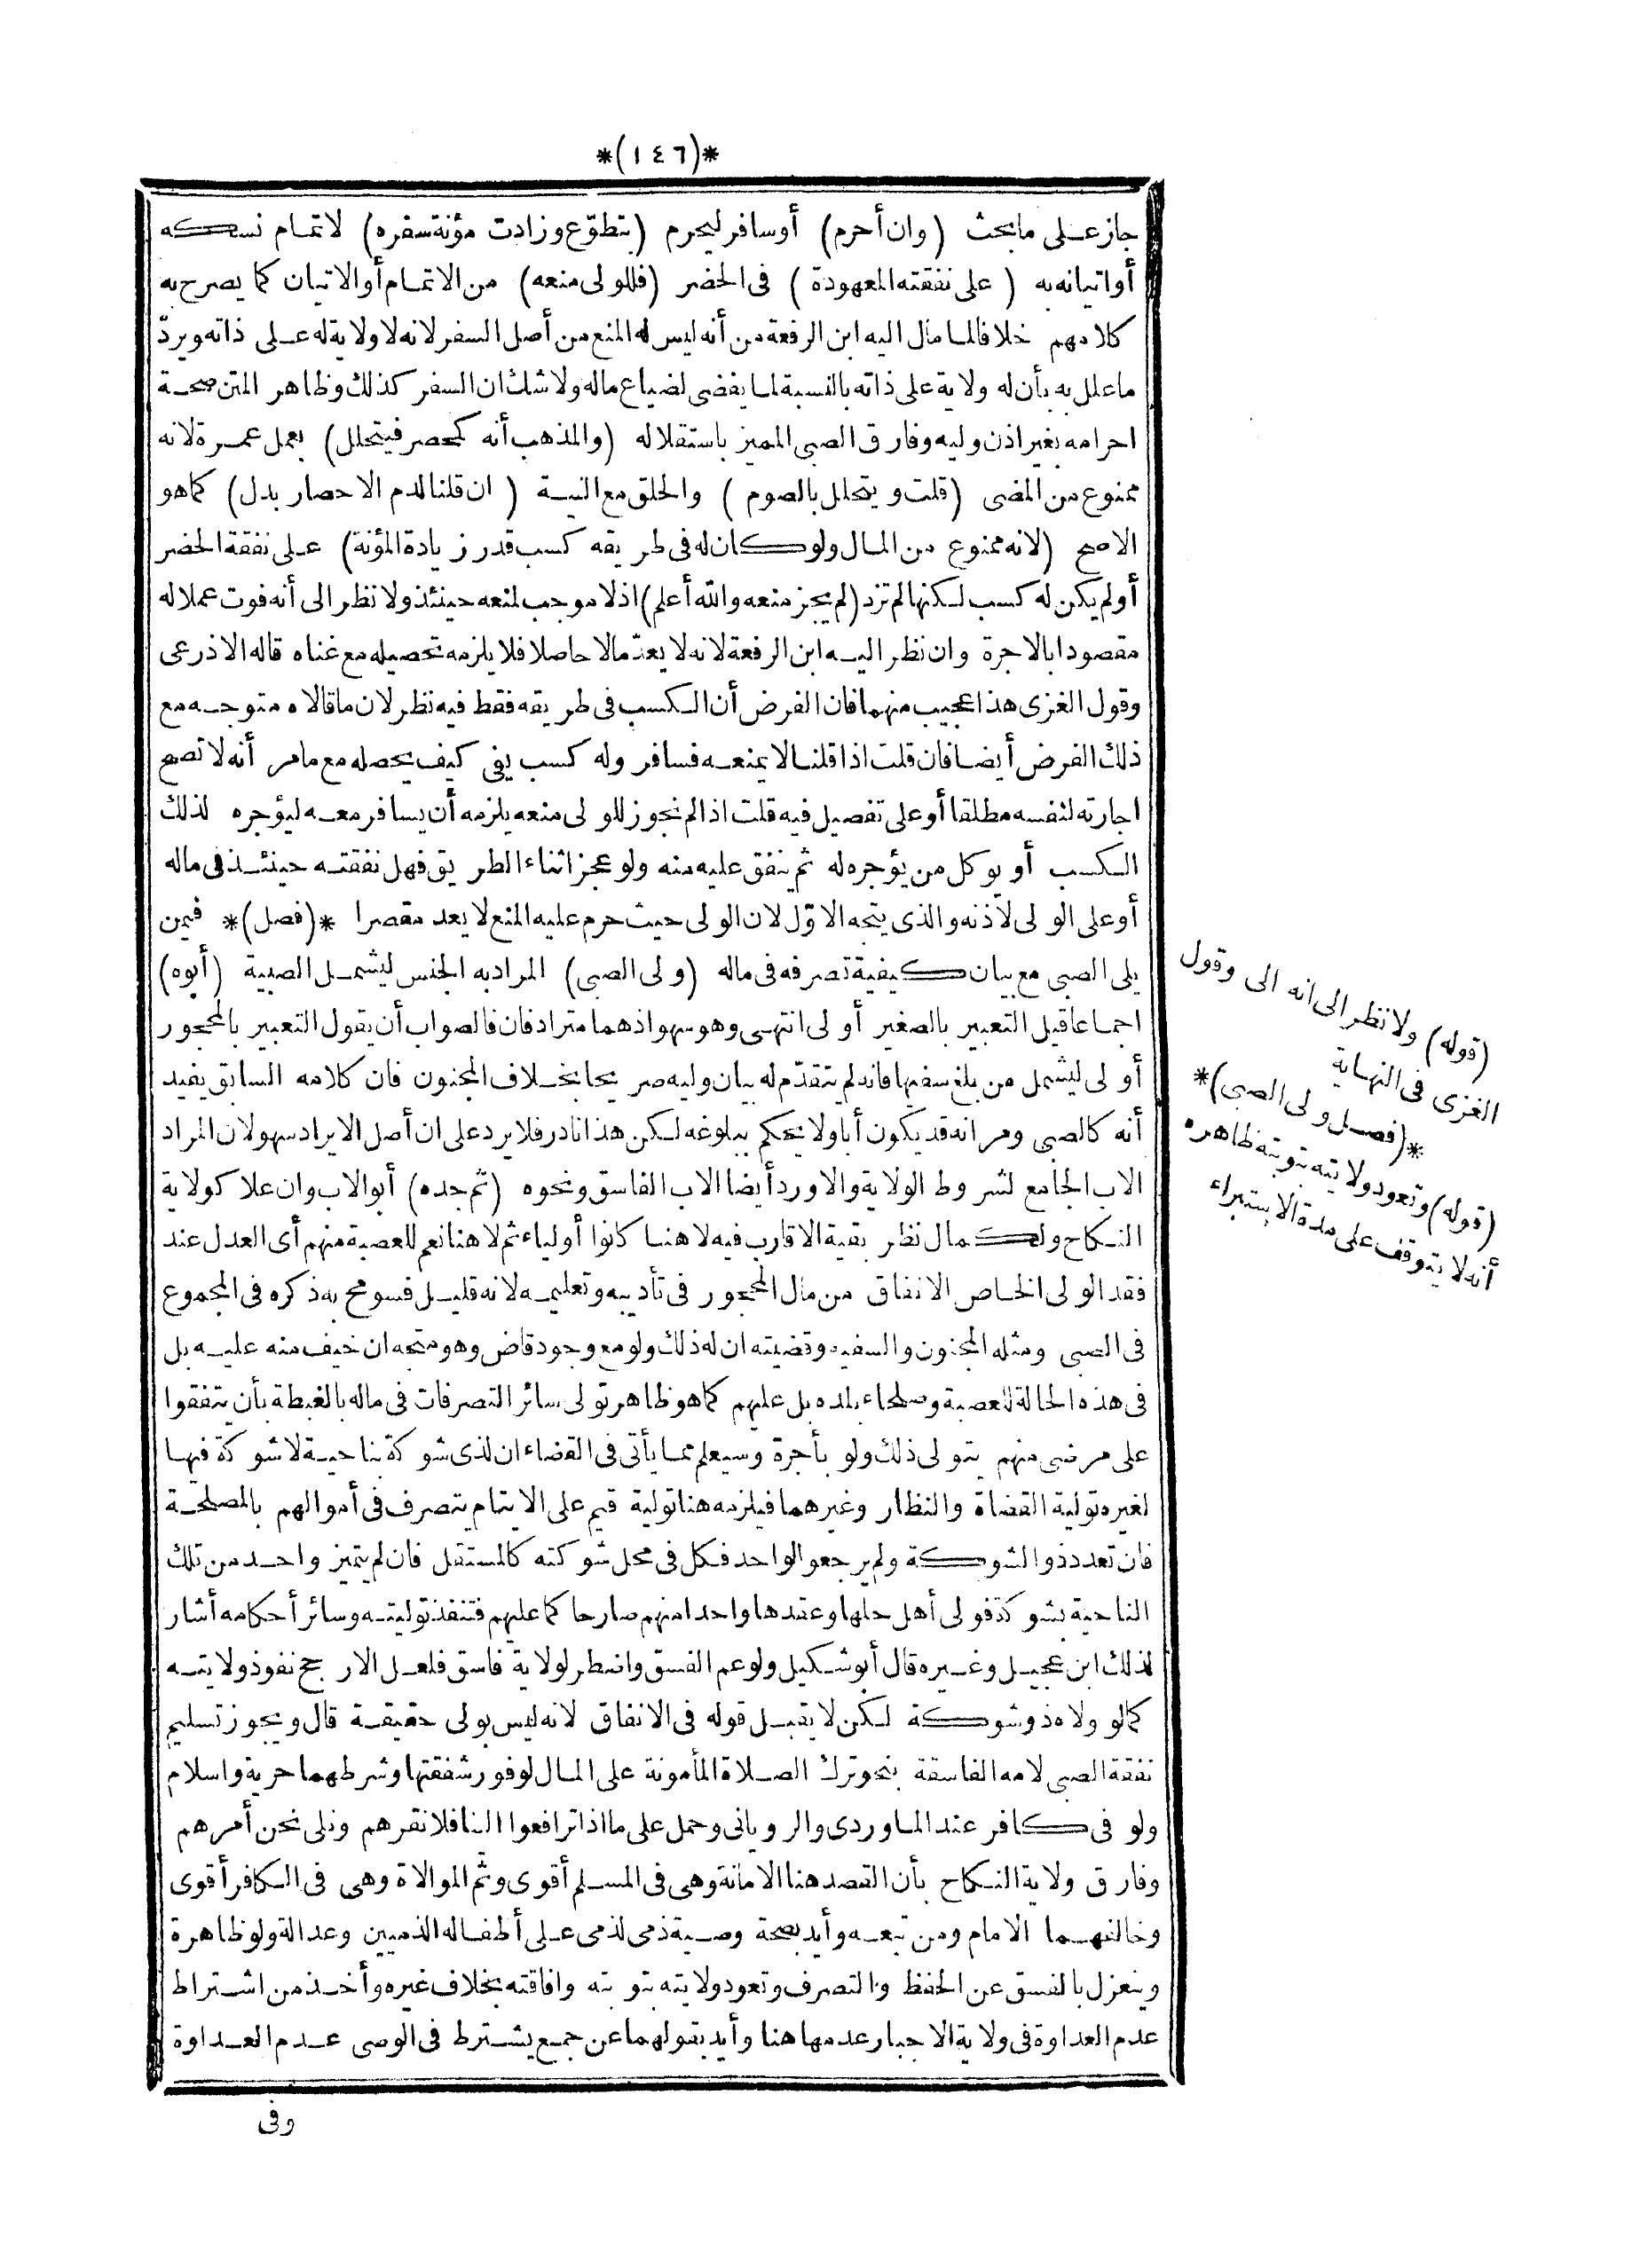 *(١٤٦)*
جاز على ما بحث (وان أحرم) أو سافر ليحرم (بتطوّع وزادت مؤنة سفره) لاتمام نسكه
أو اتيانه به (على نفقته المعهودة) فى الحضر (فللولى منعه) من الاتمام أو الاتيان كما يصرح به
كلامهم خلافا لما مال اليه ابن الرفعة من أنه ليس له المنع من أصل السفر لانه لا ولاية له على ذاته ويردّ
ما علل به بأن له ولاية على ذاته بالنسبة لما يفضى لضياع ماله ولا شك ان السفر كذلك وظاهر المتن صحة
احرامه بغير اذن وليه وفارق الصبى المميز باستقلاله (والمذهب أنه كمحصر فيتحلل) بعمل عمرة لانه
ممنوع من المضى (قلت ويتحلل بالصوم) والحلق مع النية (ان قلنا لدم الاحصار بدل) كما هو
الاصح (لانه ممنوع من المال ولو كان له فى طريقه كسب قدر زيادة المؤنة) على نفقة الحضر
أو لم يكن له كسب لكنها لم تزد (لم يجز منعه والله أعلم) اذ لا موجب لمنعه حينئذ ولا نظر الى أنه فوت عملا له
مقصودا بالاجرة وان نظر اليه ابن الرفعة لانه لا يعدّ مالا حاصلا فلا يلزمه تحصيله مع غناه قاله الاذرعى
وقول الغزى هذا عجيب منهما فان الفرض أن الكسب فى طريقه فقط فيه نظر لان ما قالاه متوجه مع
ذلك الفرض أيضا فان قلت اذا قلنا لا يمنعه فسافر وله كسب يفى كيف يحصله مع ما مر أنه لا تصح
اجارته لنفسه مطلقا أو على تفصيل فيه قلت اذا لم نجوز للولى منعه يلزمه أن يسافر معه ليؤجره لذلك
الكسب أو يوكل من يؤجره له ثم ينفق عليه منه ولو عجز اثناء الطريق فهل نفقته حينئذ فى ماله
أو على الولى لاذنه والذى يتجه الاوّل لان الولى حيث حرم عليه المنع لا يعد مقصرا *(فصل)* فيمن
يلى الصبى مع بيان كيفية تصرفه فى ماله (ولى الصبى) المراد به الجنس ليشمل الصبية (أبوه)
اجماعا قيل التعبير بالصغير أولى انتهى وهو سهو اذ هما مترادفان فالصواب أن يقول التعبير بالمحجور
أولى ليشمل من بلغ سفيها فانه لم يتقدّم له بيان وليه صريحا بخلاف المجنون فان كلامه السابق يفيد
أنه كالصبى ومر انه قد يكون أبا ولا يحكم ببلوغه لكن هذا نادر فلا يرد على ان أصل الايراد سهو لان المراد
الاب الجامع لشروط الولاية والا ورد أيضا الاب الفاسق ونحوه (ثم جده) أبو الاب وان علا كولاية
النكاح ولكمال نظر بقية الاقارب فيه لا هنا كانوا أولياء ثم لا هنا نعم للعصبة منهم أى العدل عند
فقد الولى الخاص الانفاق من مال المحجور فى تأديبه وتعليمه لانه قليل فسومح به ذكره فى المجموع
فى الصبى ومثله المجنون والسفيه وقضيته ان له ذلك ولو مع وجود قاض وهو متجه ان خيف منه عليه بل
فى هذه الحالة للعصبة وصلحاء بلده بل عليهم كما هو ظاهر تولى سائر التصرفات فى ماله بالغبطة بأن يتفقوا
على مرضى منهم يتولى ذلك ولو بأجرة وسيعلم مما يأتى فى القضاء ان لذى شوكة بناحية لا شوكة فيها
لغيره تولية القضاة والنظار وغيرهما فيلزمه هنا تولية قيم على الايتام يتصرف فى أموالهم بالمصلحة
فان تعدد ذو والشوكة ولم يرجعوا لواحد فكل فى محل شوكته كالمستقل فان لم يتميز واحد من تلك
الناحية بشوكة فولى أهل حلها وعقدها واحدا منهم صار حاكما عليهم فتنفذ توليته وسائر أحكامه أشار
لذلك ابن عجيل وغيره قال أبو شكيل ولو عم الفسق واضطر لولاية فاسق فلعل الارجح نفوذ ولايته
كما لو ولاه ذو شوكة لكن لا يقبل قوله فى الانفاق لانه ليس بولى حقيقة قال ويجوز تسليم
نفقة الصبى لامه الفاسقة بنحو ترك الصلاة المأمونة على المال لوفور شفقتها وشرطهما حرية واسلام
ولو فى كافر عند الماوردى والرويانى وحمل على ما اذا ترافعوا الينا فلا نقرهم ونلى نحن أمرهم
وفارق ولاية النكاح بأن القصد هنا الامانة وهى فى المسلم أقوى وثم الموالاة وهى فى الكافر أقوى
وخالفهما الامام ومن تبعه وأيد بصحة وصية ذمى لذمى على أطفاله الذميين وعدالة ولو ظاهرة
وينعزل بالفسق عن الحفظ والتصرف وتعود ولايته بتوبته وافاقته بخلاف غيره وأخذ من اشتراط
عدم العداوة فى ولاية الاجبار عدمها هنا وأيد بقولهما عن جمع يشترط فى الوصى عدم العداوة
وفى
(قوله) ولا نظر الى انه الى وقول
الغزى فى النهاية
*(فصل ولى الصبى)*
(قوله) وتعود ولايته بتوبته ظاهره
أنه لا يتوقف على مدة الاستبراء